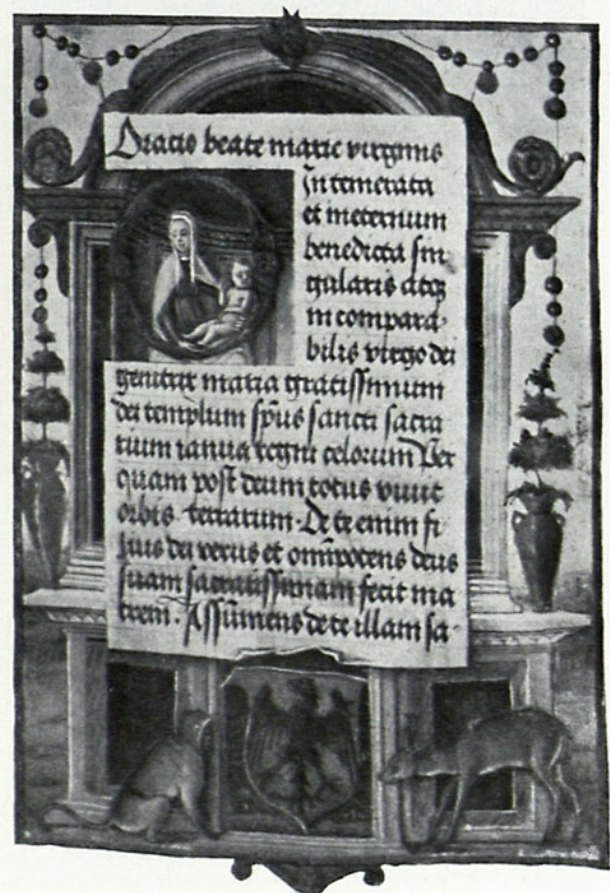 Oratio beate marie virginis
Intemerata
et ineternum
benedicta sin
gularis atqȝ
incompara-
bilis virgo dei
genitrix maria gratissimum
dei templum spūs sancti sacra
rium ianua regni celorum Per
quam post deum totus viuit
orbis terrarum. De te enim fi
lius dei verus et omīpotens deus
suam sacratissimam fecit ma
trem. Assumens de te illam sa-